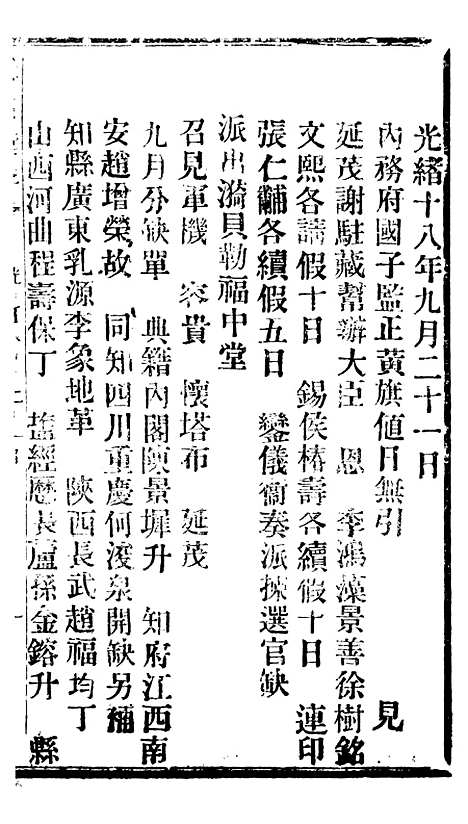 光緒十八年九月二十一日
內務府國子監正黃旗值日無引　見
延茂謝駐藏幫辦大臣　恩　李鴻藻景善徐樹銘
文熙各請假十日　錫侯椿壽各續假十日　連印
張仁黼各續假五日　鑾儀衛奏派揀選官缺
派出漪貝勒福中堂
召見軍機　容貴　懷塔布　延茂
九月分缺單　典籍內閣陳景墀升　知府江西南
安趙增榮故　同知四川重慶何浚泉開缺另補
知縣廣東乳源李象地革　陝西長武趙福均丁
山西河曲程壽保丁　塩經歷長蘆孫金鎔升　縣